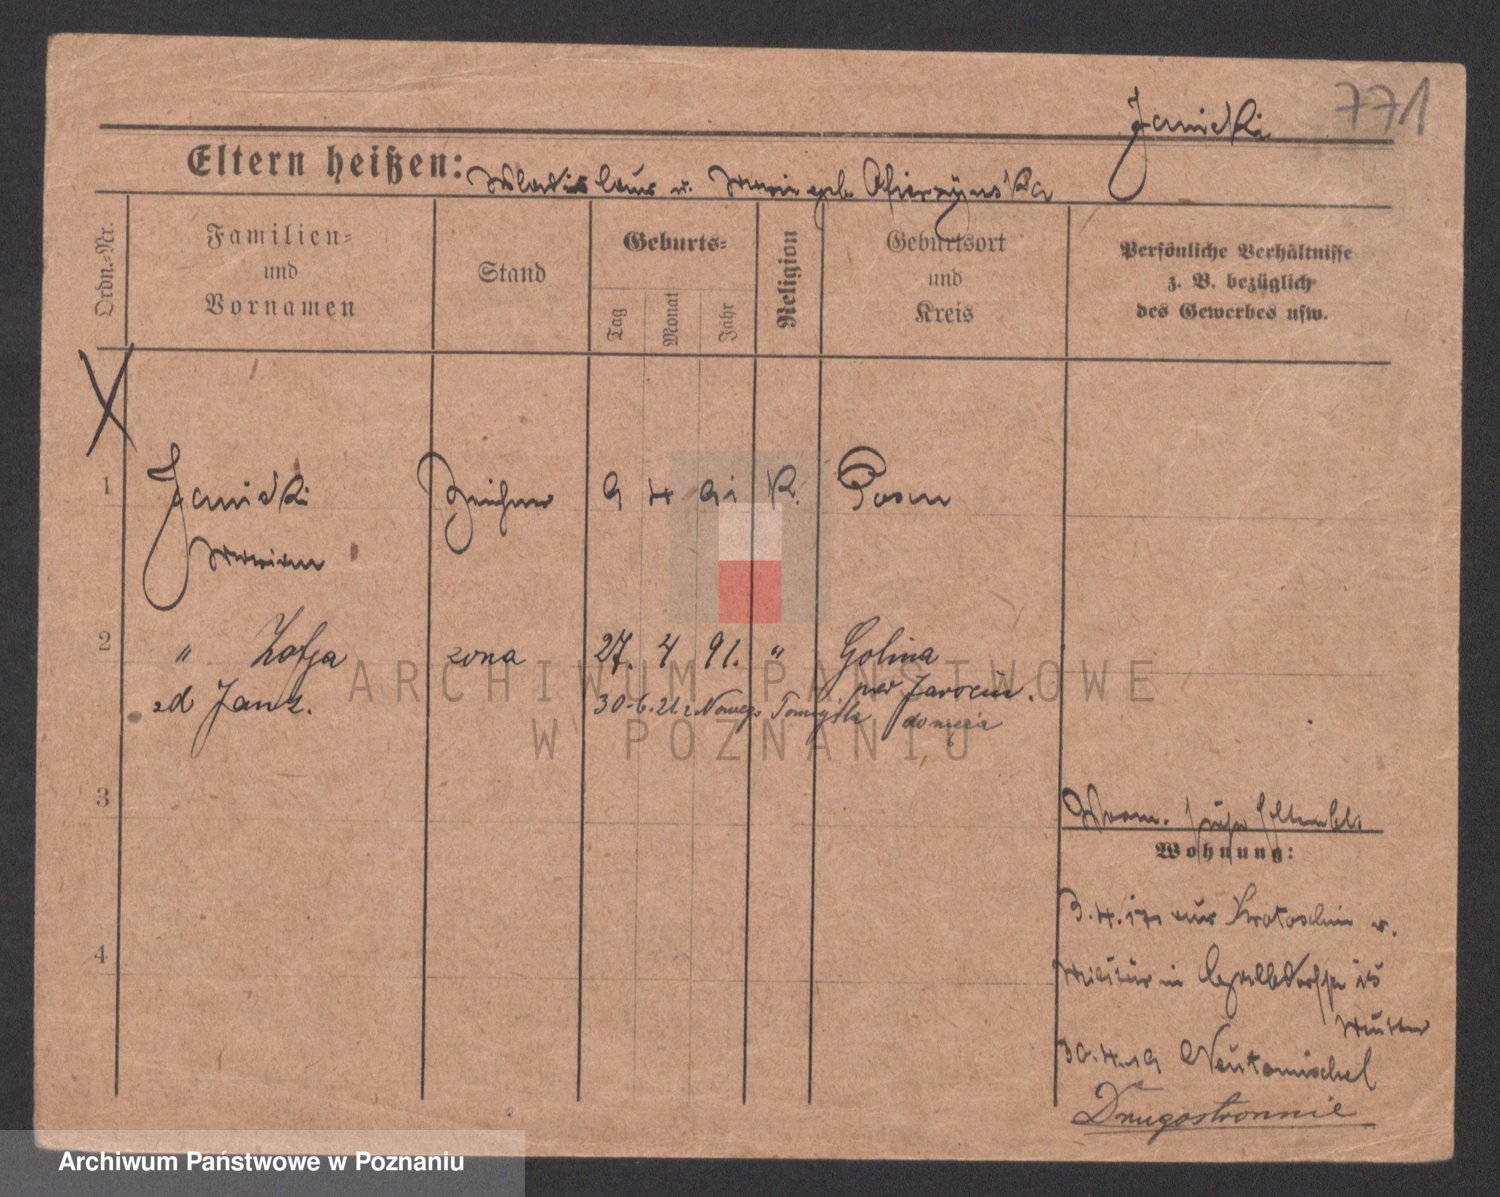 771
Janicki
Eltern heißen: Wladislaus u. geb.
Ordn.-Nr.
Familien- und Vornamen
Stand
Geburts-
Tag
Monat
Jahr
Religion
Geburtsort und Kreis
Persönliche Verhältnisse
z. B. bezüglich
des Gewerbes usw.
1 Janicki Zeichner 9 4 91 K. Posen
Marian
2 " Zofja żona 27. 4 91. "  Golina
pow Jarocin.
zd Janz. 30-6-21 z Nowego Tomyśla do męża
3
Wohnung:
3.4.17 aus Krotoschin v.
Militär in 15
4
Mutter
30.4.19 Neutomischel
Drugostronnie
ARCHIWUM PAŃSTWOWE
W POZNANIU
Archiwum Państwowe w Poznaniu